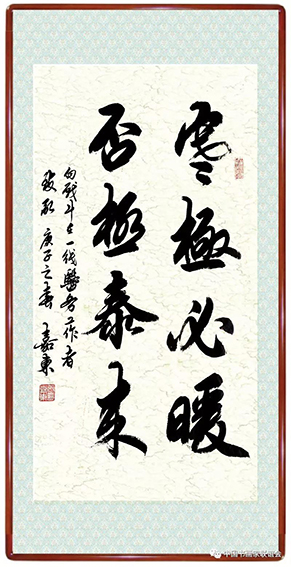 寒極必暖
否極泰來
向戰斗在一线醫务工作者
致敬 庚子之春 嘉東
中国书画家联谊会